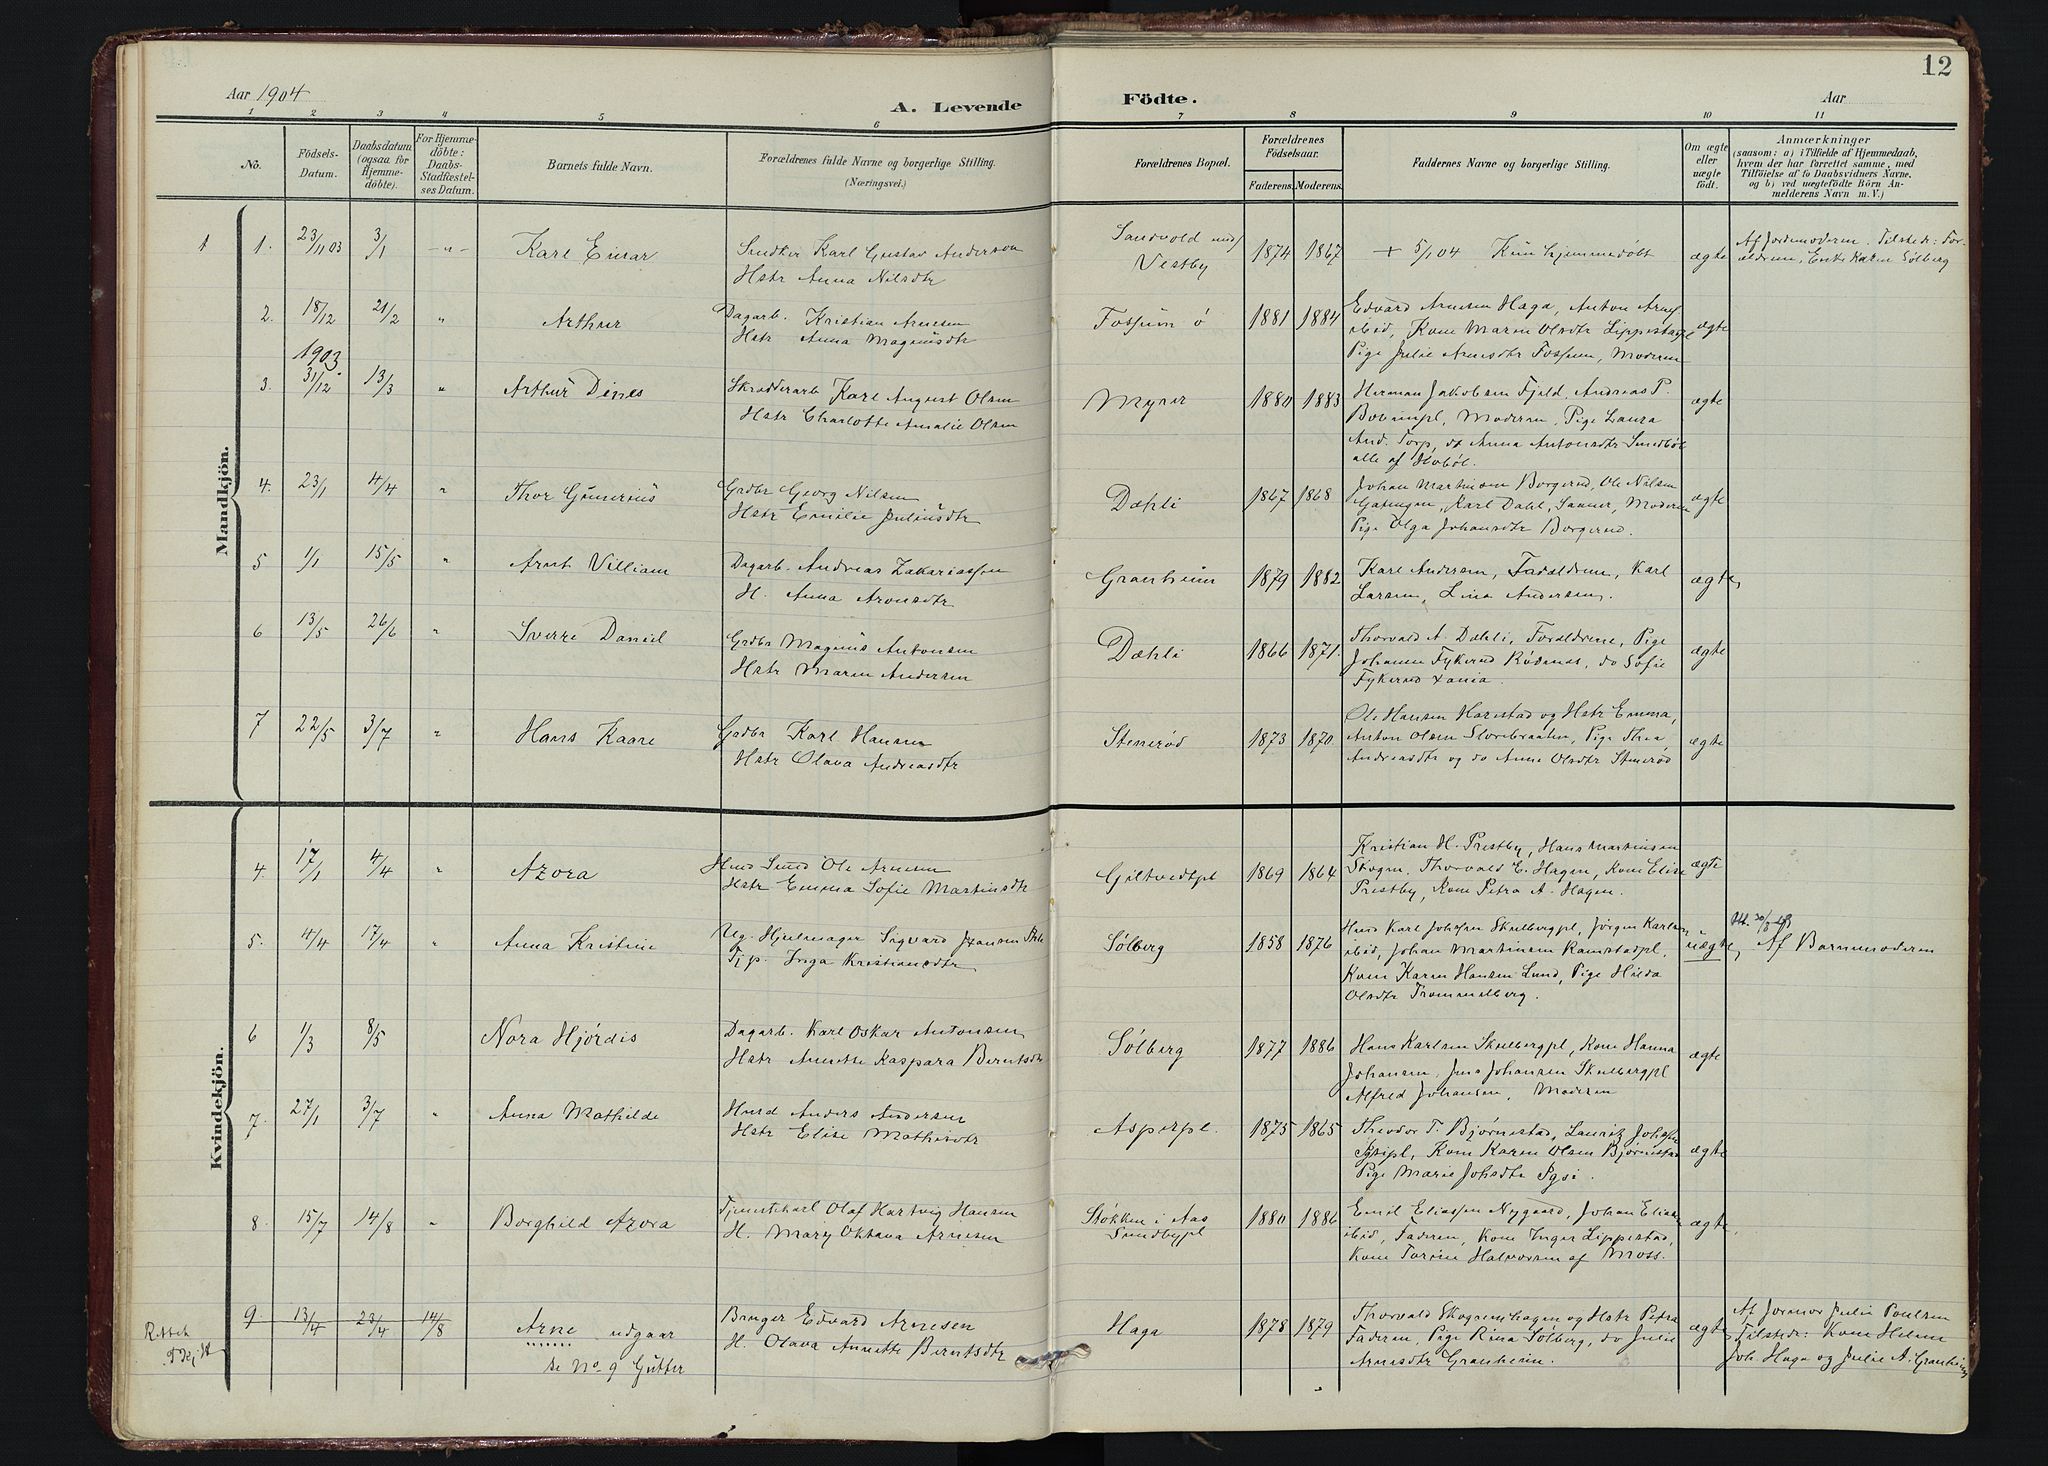 12
Aar 1904
A. Levende
Födte.
Aar
1 2 3 4 5 6 7 8 9 10 11
No.
Födsels-Datum.
Daabsdatum (ogsaa for Hjemmedöbte).
For Hjemmedöbte: Daabs-Stadfæstelses Datum.
Barnets fulde Navn.
Forældrenes fulde Navne og borgerlige Stilling.
(Næringsvei.)
Forældrenes Bopæl.
Forældrenes Födselsaar.
Faderens. Moderens.
Faddernes Navne og borgerlige Stilling.
Om ægte eller uægte födt.
Anmærkninger
(saasom: a) i Tilfælde af Hjemmedaab,
hvem der har forrettet samme, med
Tilföielse af to Daabsvidners Navne,
og b) ved uægtefödte Börn Anmelderens Navn m. V.)
Mandkjön.
1 1. 23/11 03 3/1 -"- Karl Einar
Karl Gustav Anderson
Hstr Anna Nilsdtr
Sandvold
Vestby
1874 1867 + 5/1 04 Kun hjemmedøbt ægte
Af Jordemoderen. Tilstede: Forældrene, Enke Karen Sølberg
2. 18/12 1903 21/2 " Arthur
Dagarb. Kristian Arnesen
Hstr Anna Magnusdtr
Fossum ø 1881 1884
Edvard Arnesen Haga, Anton Arnes
ibid, Kone Maren Olsdtr Lippestad
Pige Julie Arnesdtr Fossum, Moderen
ægte
3. 31/12 13/3 " Arthur Dines
Skrædderarb Karl August Olsen
Hstr Charlotte Amalie Olsen
Myrer 1880 1883
Herman Jakobsen Fjeld, Andreas P.
Moderen, Pige Laura
And. Torp, do Anna Antonsdtr Smedbøl
alle af Hobøl.
ægte
4. 23/1 4/4 " Thor Gunerius
Grdbr Georg Nilsen
Hstr Emilie Juliusdtr
Dæhli 1867 1868
Johan Martinsen Borgerud, Ole Nilsen
Karl Dahl, Sanner, Moderen
Pige Olga Johansdtr Borgerud.
ægte
5 1/1 15/5 " Arnt Villiam
Dagarb. Andreas Zakariassen
H. Anna Aronsdtr
Granheim 1879 1882
Karl Andersen, Forældrene, Karl
Larsen, Lina Andersen.
ægte
6 13/5 26/6 " Sverre Daniel
Grdbr Magnus Antonsen
Hstr Maren Andersen
Dæhli 1866 1871.
Thorvald A. Dæhli, Forældrene, Pige
Johanne Fykerud Rødenes, do Sofie
Fykerud
ægte
7 22/5 3/7 " Hans Kaare
Grdbr Karl Hansen
Hstr Olava Andreasdtr
Stenerød 1873 1870.
Ole Hansen Harestad og Hstr Emma,
Anton Olsen Storebraaten, Pige Thea
Andreasdtr og do Anne Olsdtr Stenerød
ægte
Kvindekjön.
4. 17/1 4/4 " Azora
Husmd Smed Ole Arnesen
Hstr Emma Sofie Martinsdtr
Giltvedtpl 1869 1864
Kristian H. Prestby, Hans Martinsen
Skogen, Thorvald E. Hagen, Kone Elise
Prestby, Kone Petra A. Hagen.
ægte
5. 4/4 17/4 " Anna Kristine
Ug. Hjulmager Sigvard Hansen
Pige Inga Kristiansdtr
Sølberg 1858 1876
Husmd Karl Johansen Skulbergpl, Jørgen Karlsen
ibid, Johan Martinsen Ramstadpl,
Kone Karen Hansen Lund, Pige Hilda
Olsdtr Trommelberg.
uægte
Af Barnemoderen
6 1/3 8/5 Nora Hjørdis
Dagarb. Karl Oskar Antonsen
Hstr Annette Kaspara Berntsdtr
Sølberg 1877 1886
Hans Karlsen Skulbergpl, Kone Hanna
Johansen, Jens Johansen Skulbergpl
Alfred Johansen, Moderen
ægte
7. 27/1 3/7 " Anna Mathilde
Husmd Anders Andersen
Hstr Elise Mathisdtr
Asperpl. 1875 1865
Theodor T. Bjørnestad, Lauritz Johsen
Kone Karen Olsen Bjørnestad
Pige Marie Johsdtr
ægte
8. 15/7 14/8 " Borghild Azora
Tjenestekarl Olaf Hartvig Hansen
H. Mary Oktava Arnesen
Støkken i Aas
Sundbypl
1880 1886
Emil Eliassen Nygaard, Johan Eliassen
ibid, Faderen, Kone Inger Lippestad,
Kone Torine Halvorsen af Moss.
ægte
9. 13/4 23/4 14/8 Arne udgaar
se No. 9 Gutter
Rettet
Bruger Edvard Arnesen
H. Olava Annette Berntsdtr
Haga 1878 1879
Thorvald Skogrenhagen og Hstr Petra
Faderen, Pige Rina Sølberg, do Julie
Arnesdtr Granheim.
ægte
Af Jormor Julie Poulsen
Tilstede: Kone Helene
Joh. Haga og Julie A. Granheim